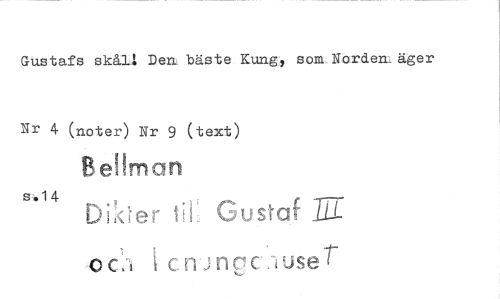 Gustafs skål! Den bäste Kung, som Norden äger
Nr 4 (noter) Nr 9 (text)
Bellman
s.14
Dikter till Gustaf III
och konungahuset